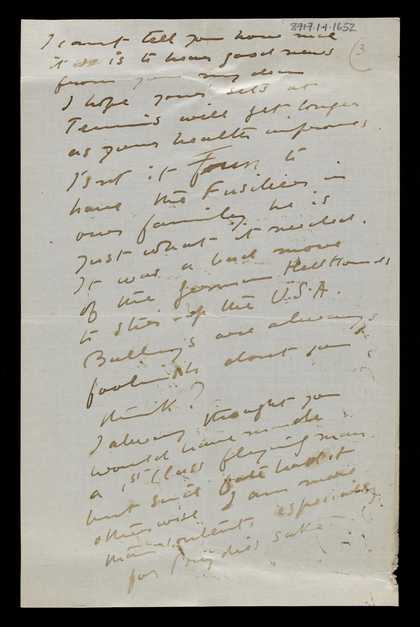 8917.1.4.1652
3
I cannot tell you how nice
it is to hear good news
from you my dear
I hope your sets at
Tennis will get longer
as your health improves.
Isn't it Fun to
have the Fusilier in
our family he is
just what it needed.
It was a bad move
of the German Hell Hounds
to stir up the U.S.A.
Bullies are always
foolish dont you
think?
I always thought you
would have made
a 1st Class flying man
but since Fate had it
otherwise I am more
than content especially
for sake